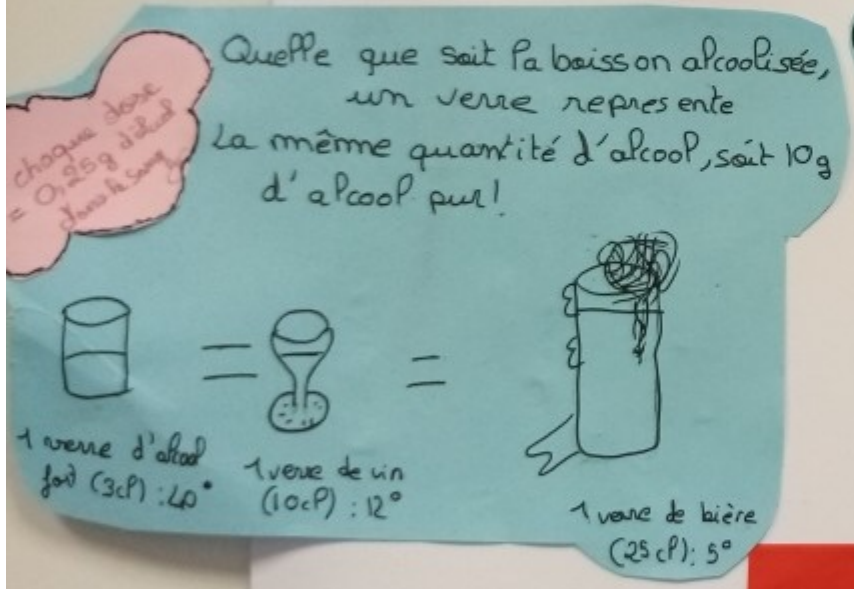 Quelle que soit la boisson alcoolisée,
un verre represente
La même quantité d'alcool, soit 10g
d'alcool pur!
chaque dose
= 0,25g d'alcool
dans le sang
=
=
1 verre d'alcool
fort (3cl) : 40°
1 verre de vin
(10cl) : 12°
1 verre de bière
(25cl) : 5°